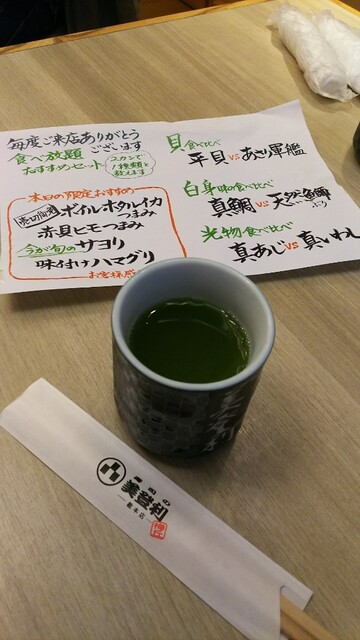 毎度ご来店ありがとう
ございます
食べ放題
おすすめセット
2カンで
1種類と
数えます
本日の限定おすすめ
ボイルホタルイカ
つまみ
赤貝ヒモつまみ
今が旬のサヨリ
味付けハマグリ
貝食べ比べ
平貝vsあさり軍艦
白身味の食べ比べ
真鯛vs天然魚鰤
ぶり
光物食べ比べ
真あじvs真いわし
美登利